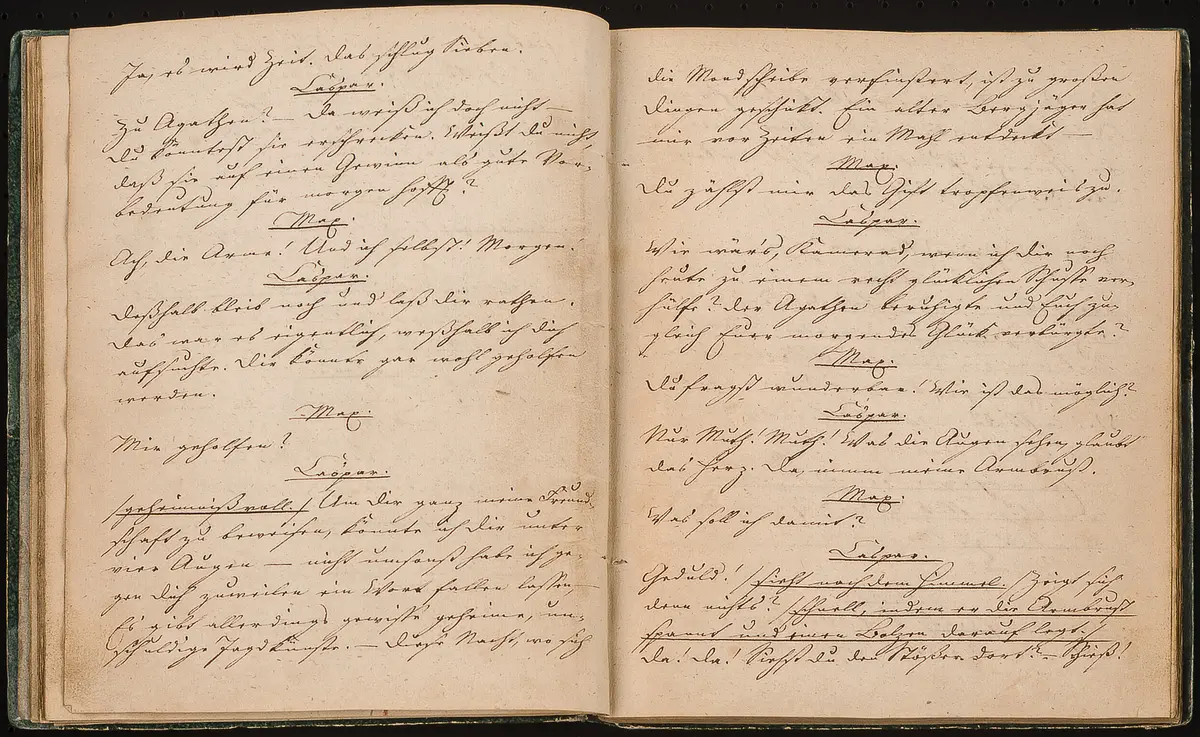 Ja, es wird Zeit. Das schlug Sieben.
Caspar.
Zu Agathen? Da weiß ich doch nicht —
Du könntest sie erschrecken. Weißt du nicht
daß sie auf einen Gewinn als gute Vor-
bedeutung für morgen hofft?
Max.
Ach, die Arme! Und ich selbst! Morgen!
Caspar.
Deßhalb bleib noch und laß dir rathen.
Das war es eigentlich, weßhalb ich dich
aufsuchte. Dir könnte gar wohl geholfen
werden.
Max.
Mir geholfen?
Caspar.
/geheimnißvoll./ Um dir ganz meine Freund-
schaft zu beweisen, könnte ich dir unter
vier Augen — nicht umsonst habe ich ge-
gen dich zuweilen ein Wort fallen lassen —
Es gibt allerdings gewisse geheime, un-
schuldige Jagdkünste. — Diese Nacht, wo sich
die Mondscheibe verfinstert, ist zu großen
Dingen geschickt. Ein alter Bergjäger hat
mir vor Zeiten ein Mahl entdeckt —
Max.
Du zählst mir das Gift tropfenweis zu.
Caspar.
Wie wär's, Kamerad, wenn ich dir noch
heute zu einem recht glücklichen Schusse ver-
hülfe? Der Agathen beruhigte und Euch zu-
gleich Euer morgendes Glück verbürgte?
Max.
Du fragst wunderbar! Wie ist das möglich?
Caspar.
Nur Muth! Muth! Was die Augen sehen, glaubt
das Herz. Da, nimm meine Armbrust.
Max.
Was soll ich damit?
Caspar.
Geduld! /sieht nach dem Himmel./ Zeigt sich
denn nichts? /schnell, indem er die Armbrust
spannt und einen Bolzen darauf legt./
Da! Da! Siehst du den Stößer dort? — Schieß!